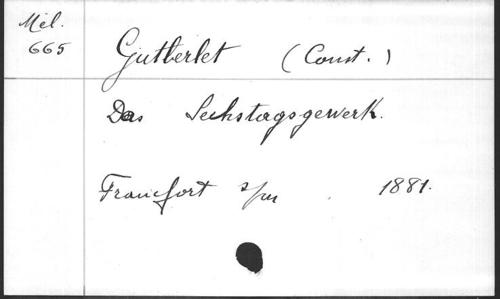 Mél.
665
Gutberlet (Const.)
Das Sechstagsgewerk.
Francfort s/m 1881.